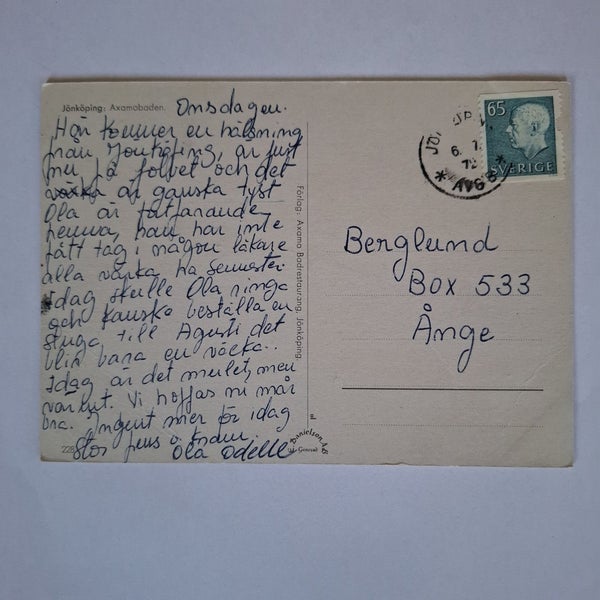 Jönköping: Axamobaden. Onsdagen.
Här kommer en hälsning
från Jönköping, är just
nu på torvet och det
är ganska tyst
Ola är fortfarande
hemma, han har inte
fått tag i någon läkare
alla verka ha semester
Idag skulle Ola ringa
och kanske beställa en
stuga, till Agusti det
blir bara en vecka..
Idag är det mulet, men
varmt. Vi hoppas ni mår
bra. Ingent mer för idag
Stor
Ola Odelle
228
Förlag: Axamo Badrestaurang, Jönköping.
Danielson
65
SVERIGE
6.
72
AVG
Berglund
Box 533
Ånge